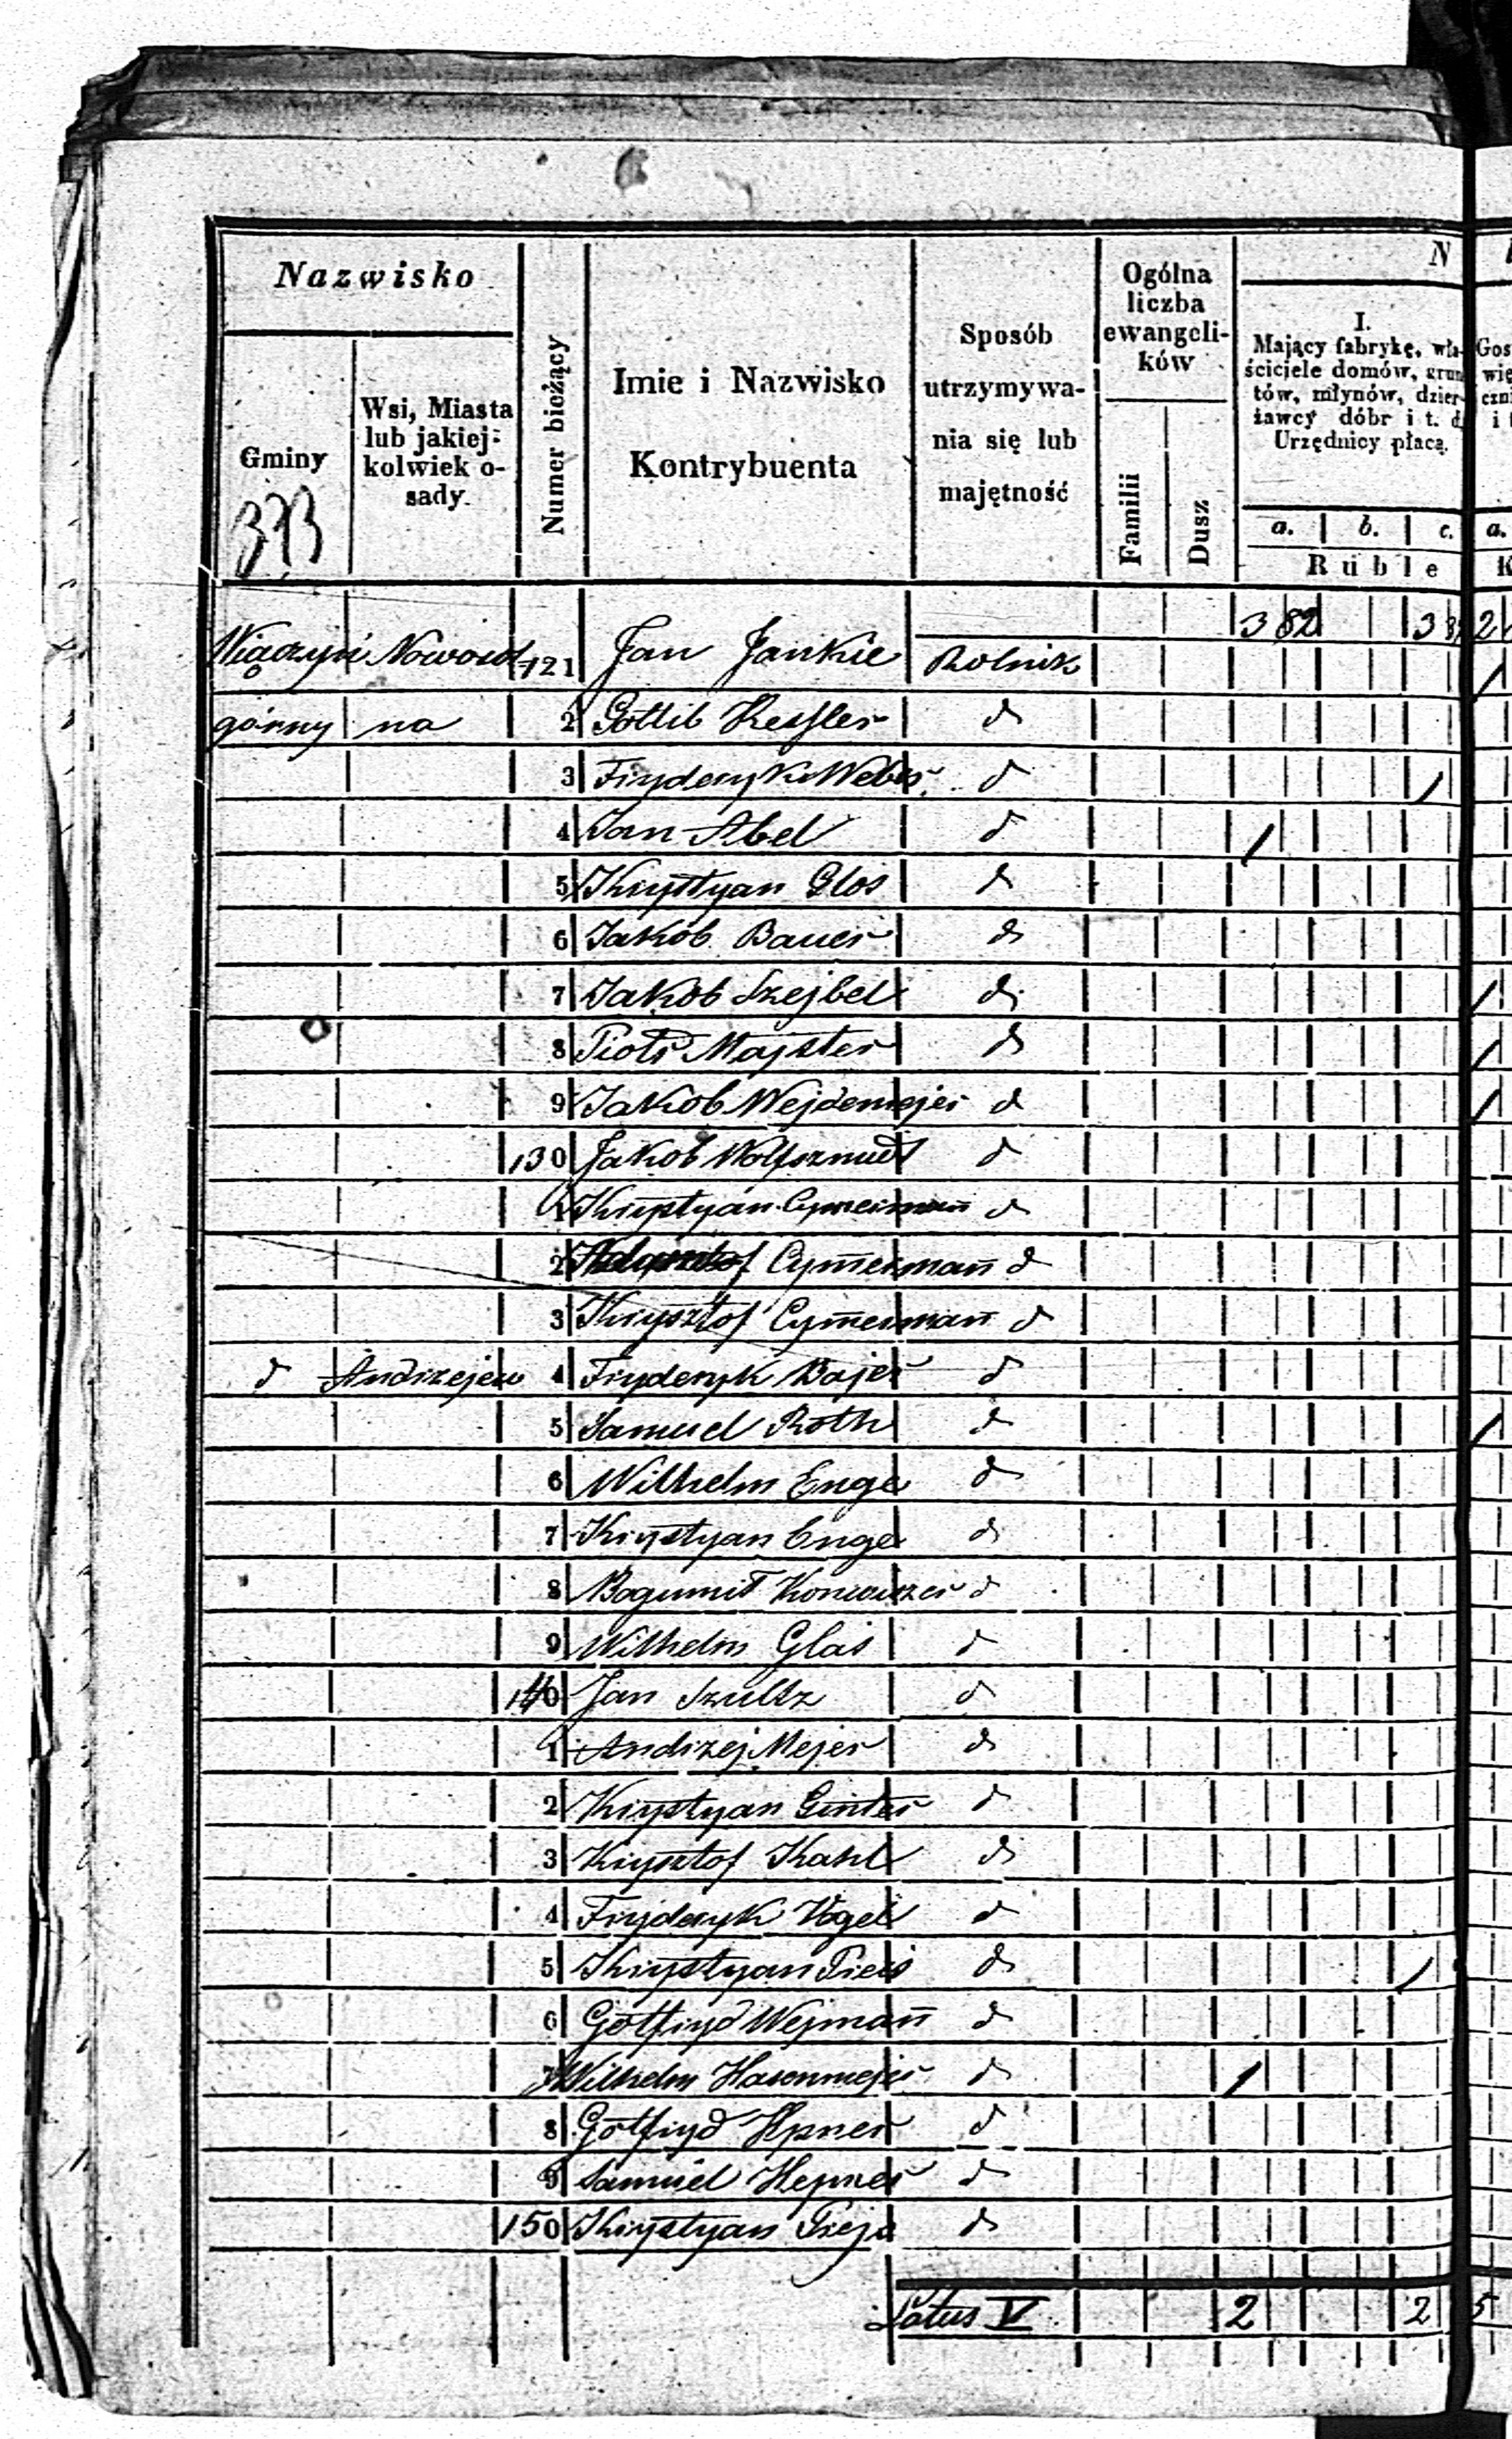 Nazwisko
Gminy
Wsi, Miasta
lub jakiej-
kolwiek o-
sady.
Numer bieżący
Imie i Nazwisko
Kontrybuenta
Sposób
utrzymywa-
nia się lub
majętność
Ogólna
liczba
ewangeli-
ków
Familii
Dusz
N
I.
Mający fabrykę, wła-
ściciele domów, grun
tów, młynów, dzier-
żawcy dóbr i t. d.
Urzędnicy płacą.
a. b. c. a.
Ruble K
Gos
wię
czn
i t
373
3 82 3 2
Wiączyń Nowosol 121 Jan Jankie Rolnik
górny na 2 Gottlib Kessler d
3 Fryderyk Weber d
4 Jan Abel d
5 Krystyan Glos d
6 Jakób Bauer d
7 Jakób Szejbel d
8 Piotr Majster d
9 Jakób Wejdemejer d
130 Jakób Wolfszmidt d
1 Krystyan Cymerman̄ d
2 Cymerman̄ d
3 Krysztof Cymerman̄ d
d Andrzejew 4 Fryderyk Bajer d
5 Samuel Roth d
6 Wilhelm Enge d
7 Krystyan Enge d
8 Bogumił d
9 Wilhelm Glas d
140 Jan Szultz d
1 Andrzej Mejer d
2 Krystyan Ginter d
3 Krysztof Kahl d
4 Fryderyk Vogel d
5 Krystyan d
6 Gotfryd Wejman̄ d
7 Wilhelm Hasenmejer d
8 Gotfryd Hepner d
9 Samuel Hepner d
150 Krystyan d
Latus V 2 2 5